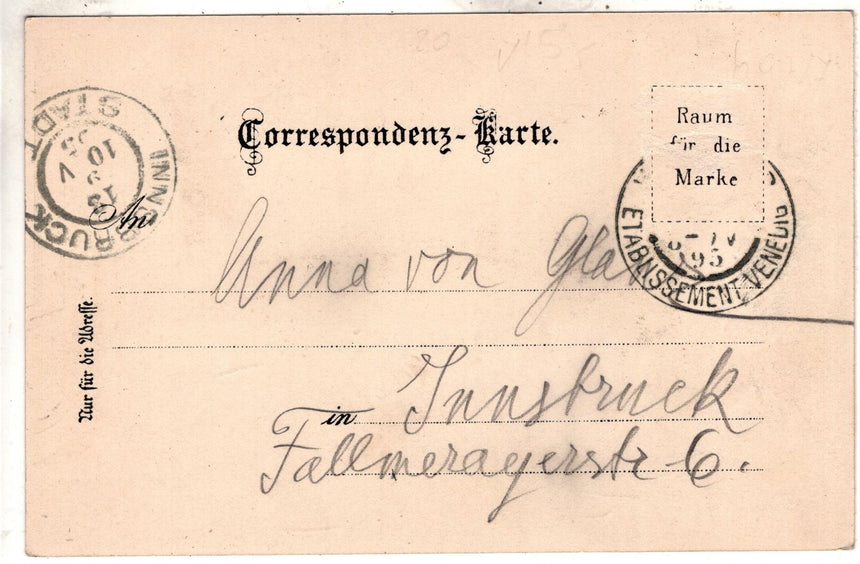 Correspondenz-Karte.
Raum
für die
Marke
INNSBRUCK
STADT
ETABLISSEMENT VENEDIG
95
An
Anna von
in Innsbruck
Fallmerayerstr 6.
Nur für die Adresse.